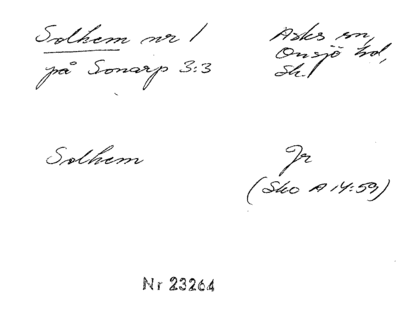 Solhem nr 1
på Sonarp 3:3
Asks sn,
Onsjö hd,
Sk.
Solhem
Jr
(Sko A 14:59)
Nr 23264